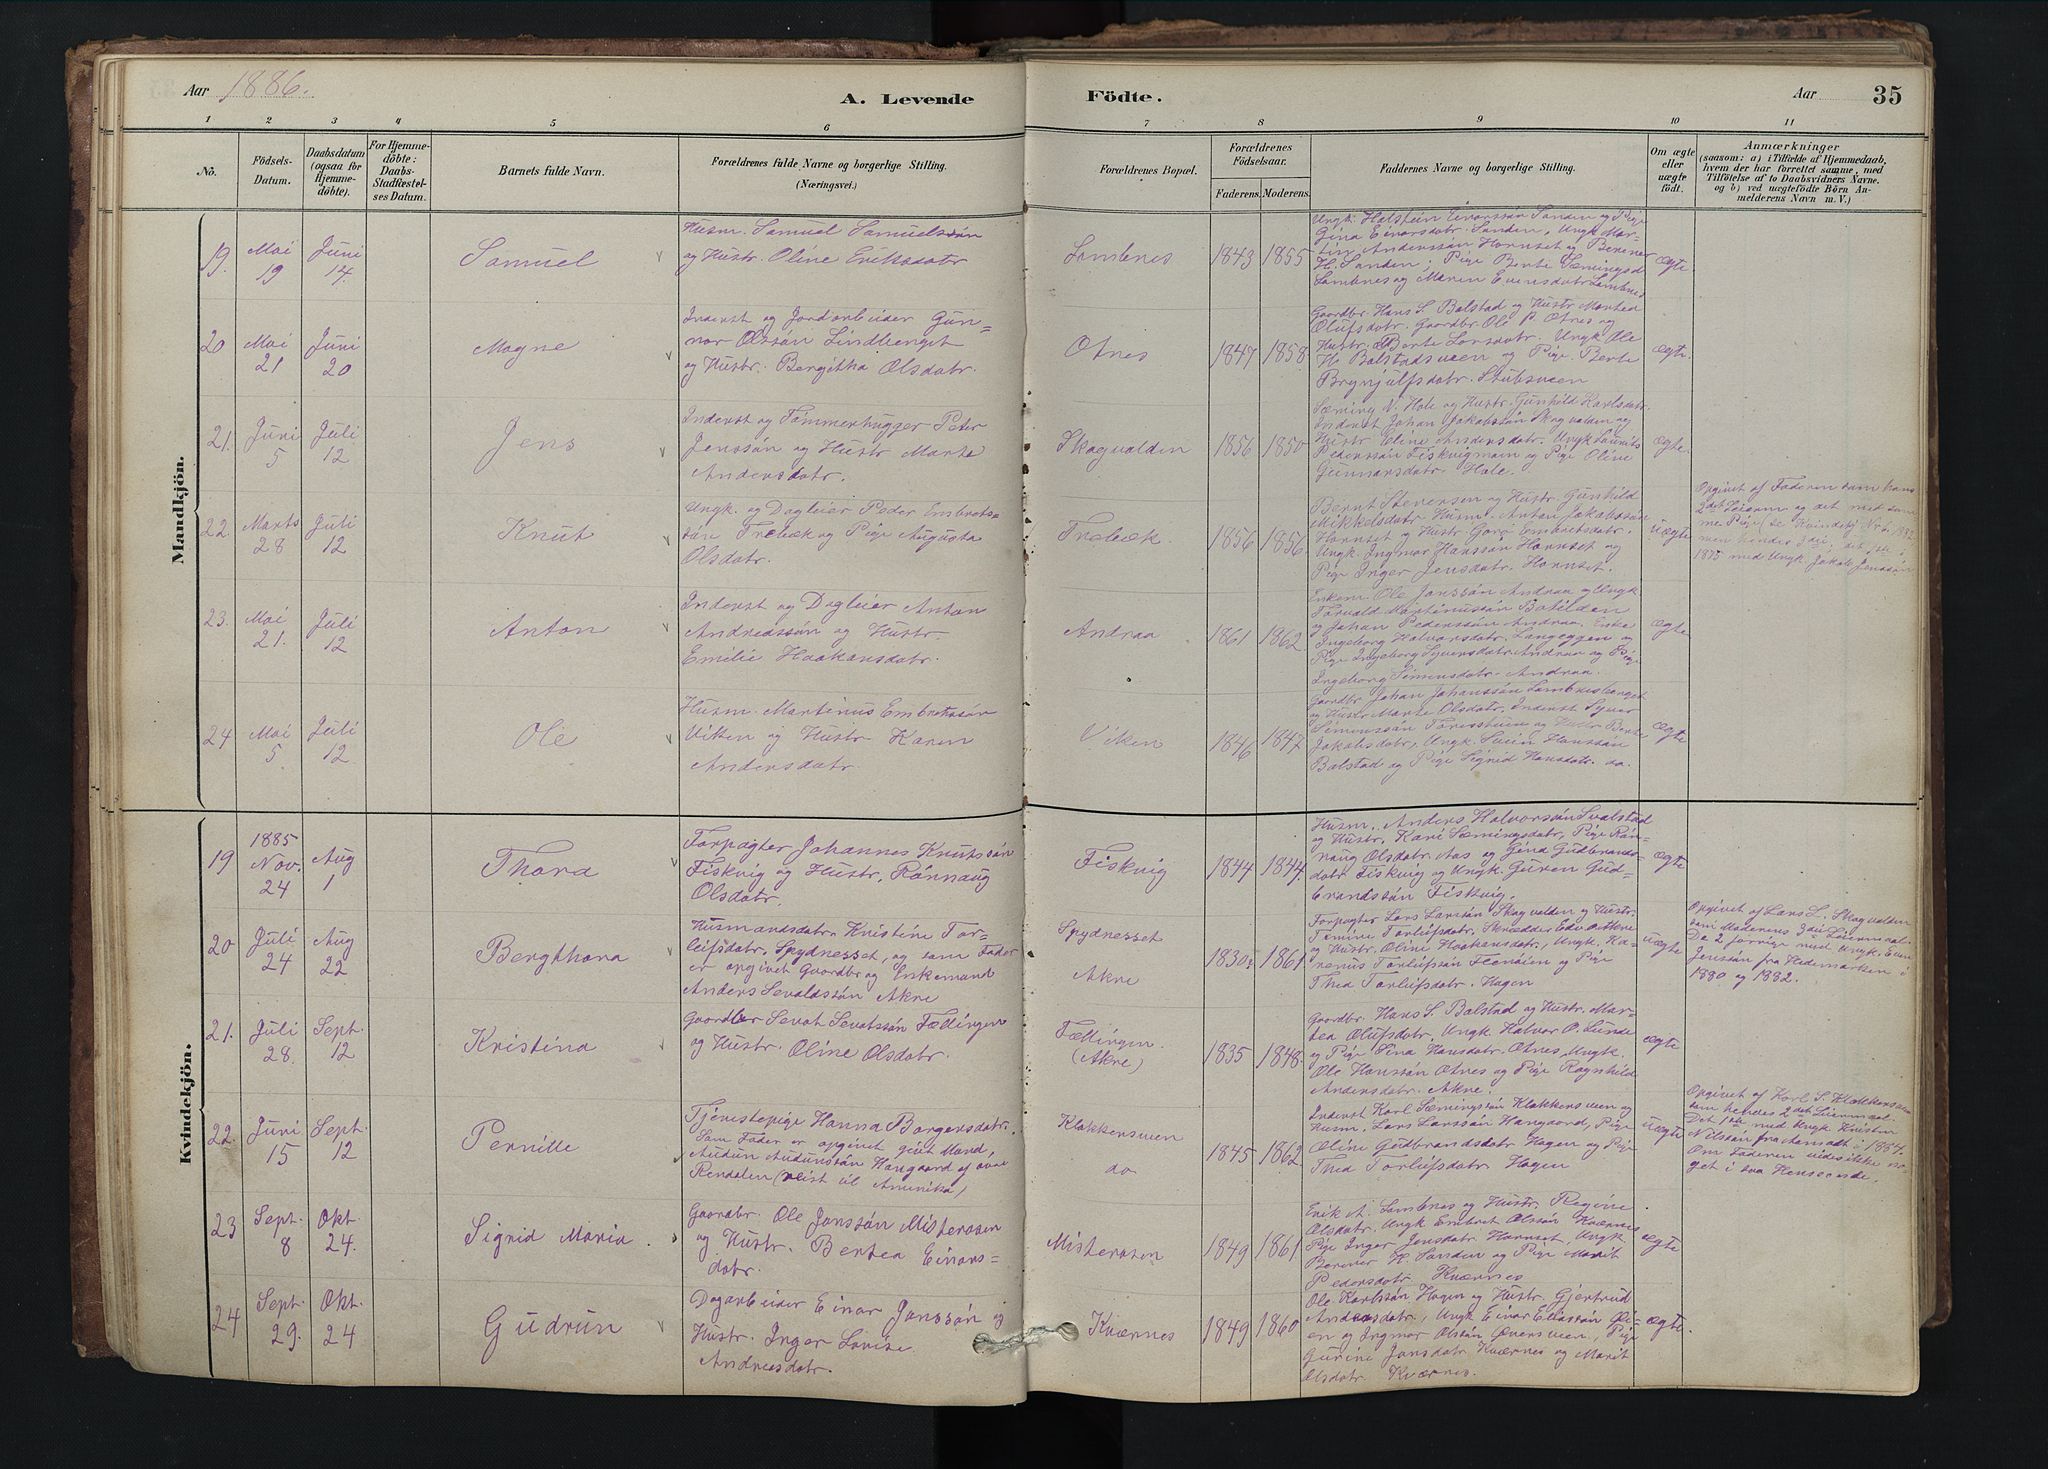 Aar 1886.
A. Levende
Födte.
Aar
35
1
2
3
4
5
6
7
8
9
10
11
No.
Födsels-
Datum.
Daabsdatum
(ogsaa for
Hjemme-
döbte).
For Hjemme-
döbte:
Daabs-
Stadfæstel-
ses Datum.
Barnets fulde Navn.
Forældrenes fulde Navne og borgerlige Stilling.
(Næringsvei.)
Forældrenes Bopæl.
Forældrenes
Födselsaar.
Faderens.
Moderens.
Faddernes Navne og borgerlige Stilling.
Om ægte
eller
uægte
födt.
Anmærkninger
(saasom: a) i Tilfælde af Hjemmedaab,
hvem der har forrettet samme, med
Tilföielse af to Daabsvidners Navne.
og b) ved uægtefödte Börn An-
melderens Navn m. V.)
Mandkjön.
19.
Mai
19
Juni
14.
Samuel
Husm. Samuel Samuelssön
og Hustr. Oline Eriksdatr
Lombnes
1843
1855
Ungk. Halstein Einarssön Sanden og Pige
Gina Einarsdatr. Sanden, Ungk. Mar-
tin Anderssön Hornset og Berener
H. Sanden; Pige Berte Sæmingsd
Lombnes og Maren Evensdatr Lombnes
ægte
20
Mai
21
Juni
20
Magne
Inderst og Jordarbeider Gun-
nar Olssön Lindberget
og Hustr. Bergitha Olsdatr.
Otnes
1847
1858
Gaardbr. Hans S. Bolstad og Hustr Martea
Olufsdatr. Gaardbr. Ole P. Otnes og
Hustr. Berte Larsdatr. Ungk Ole
H. Bolstadsveen og Pige Berte
Brynjulfsdatr. Stubsveen
ægte
21.
Juni
5
Juli
12
Jens
Inderst og Tömmerhugger Peter
Jenssön og Hustr Marte
Andersdatr.
Skogvolden
1856
1850
Sæming V. Hole og Hustr. Gunhild Karlsdatr.
Inderst Johan Jakobssön Skogvolden og
Hustr Eline Andersdatr. Ungk Laurits
Pederssön Fiskvigmoen og Pige Oline
Gunnarsdatr. Hole.
ægte.
22.
Marts
28
Juli
12
Knut
Ungk. og Dagleier Peder Embrets-
sön Trebæk og Pige Augusta
Olsdatr.
Trebæk.
1856
1856
Bernt Steversen og Hustr. Gunhild
Mikkelsdatr. Husm. Anton Jakobssön
Hornset og Hustr. Goro Embretsdatr.
Ungk. Ingmar Hanssön Hornset og
Pige Inger Jensdatr. Hornset.
uægte
Opgivet af Faderen som hans
2det Leierm. og det med sam
me Pige (se Kvindekj Nr 6. 1882
men hendes 3die, det 1ste i
1875 med Ungk. Jakob Jonssön
23.
Mai
21.
Juli
12
Anton
Inderst og Dagleier Anton
Andreassön og Hustr.
Emilie Haakonsdatr.
Andraa
1861
1862
Enkem. Ole Jonssön Andraa og Ungk
Torvald Martinussön Botilden
og Johan Pederssön Andraa. Enke
Ingeborg Halvorsdatr. Langeggen og
Pige Ingeborg Syversdatr. Andraa og Pige
Ingeborg Simensdatr. Andraa.
ægte
24
Mai
5
Juli
12
Ole
Husm. Martinus Embretssön
Viken og Hustr. Karen
Andersdatr.
Viken
1846
1847
Gaardbr. Johan Johanssön Lombnesberget
og Hustr Marte Olsdatr, Inderst Syver
Simenssön og Hustr Berte
Jakobsdatr, Ungk. Svein Hanssön
Bolstad og Pige Sigrid Hansdatr. do.
ægte
Kvindekjön.
19
1885
Nov.
24
Aug
1
Thora
Forpagter Johannes Knutssön
Fiskvig og Hustr. Rannaug
Olsdatr.
Fiskvig
1844
1844.
Husm. Anders Halvorssön Svalstad
og Hustr. Kari Sæmingsdatr, Pige Ran-
naug Olsdatr. Aas og Gina Gudbrands-
datr. Fiskvig og Ungk. Guren Gud-
brandssön Fiskvig.
ægte
20
Juli
24
Aug
22
Bergthora
Husmandsdatr. Kristine Tor-
leifsdatr. Spydnesset, og som Fader
er opgivet Gaardbr og Enkemand
Anders Sevaldssön Akre
Spydnesset
Akre
1830
1861
Forpagter Lars Larssön Skogvolden og Hustr.
Temine Torleifsdatr. Skrædder Edv. Otnes
og Hustr. Oline Haakonsdatr, Ungk. Ka-
renus Torleifssön Elenöien og Pige
Thea Torleifsdatr. Hagen
uægte
Opgivet af Lars L. Skogvolden
som Moderens 3die Leiermaal.
De 2 forrige med Ungk. Even
Jenssön fra Hedemarken i
1880 og 1882.
21.
Juli
28.
Sept.
12
Kristina
Gaardbr Sevat Sevatssön Fællingen
og Hustr. Oline Olsdatr.
Fællingen.
(Akre)
1835
1848.
Gaardbr. Hans S. Bolstad og Hustr. Mar-
tea Olufsdatr, Ungk. Halvor P. Lunde
og Pige Sina Hansdatr. Otnes, Ungk.
Ole Hanssön Otnes og Pige Ragnhild
Andersdatr. Akre.
ægte
22.
Juni
15
Sept.
12
Pernille
Tjenestepige Hanna Borgersdatr.
Som Fader er opgivet givt Mand,
Audun Audunssön Hangaard af övre
Rendalen (reist til Amerika)
Klokkersveen
do
1845
1862
Inderst Karl Sæmingssön Klokkersveen og
Husm. Lars Larssön Hangaard, Pige
Oline Gudbrandsdatr Hagen og Pige
Thea Torleifsdatr. Hagen
uægte
Opgivet af Karl S. Klokkersveen
som hendes 2det Leiermaal
Det 1ste med Ungk Kristen
Nilssön fra Aamodt i 1884.
Om Faderen vides ikke no-
get i saa Henseende.
23
Sept.
8
Okt.
24.
Sigrid Maria.
Gaardbr. Ole Jonssön Misterosen
og Hustr. Bertea Einars-
datr.
Misterosen
1849
1861
Erik A. Lombnes og Hustr. Regine
Olsdatr. Ungk Embret Olssön Kværnes
Pige Inger Jensdatr. Hornset, Ungk.
Berener H. Sanden og Pige Marit
Pedersdatr. Kværnes
ægte
24
Sept.
29.
Okt.
24
Gudrun
Dagarbeider Einar Jonssön og
Hustr. Inger Lovise
Andreasdatr.
Kværnes
1849
1860
Ole Karlssön Hagen og Hustr. Gjertrud
Andersdatr, Ungk Einar Eliassön Öi-
en og Ingmar Olssön Översveen, Pige
Gurine Jonsdatr. Kværnes og Marit
Olsdatr. Kværnes.
ægte.